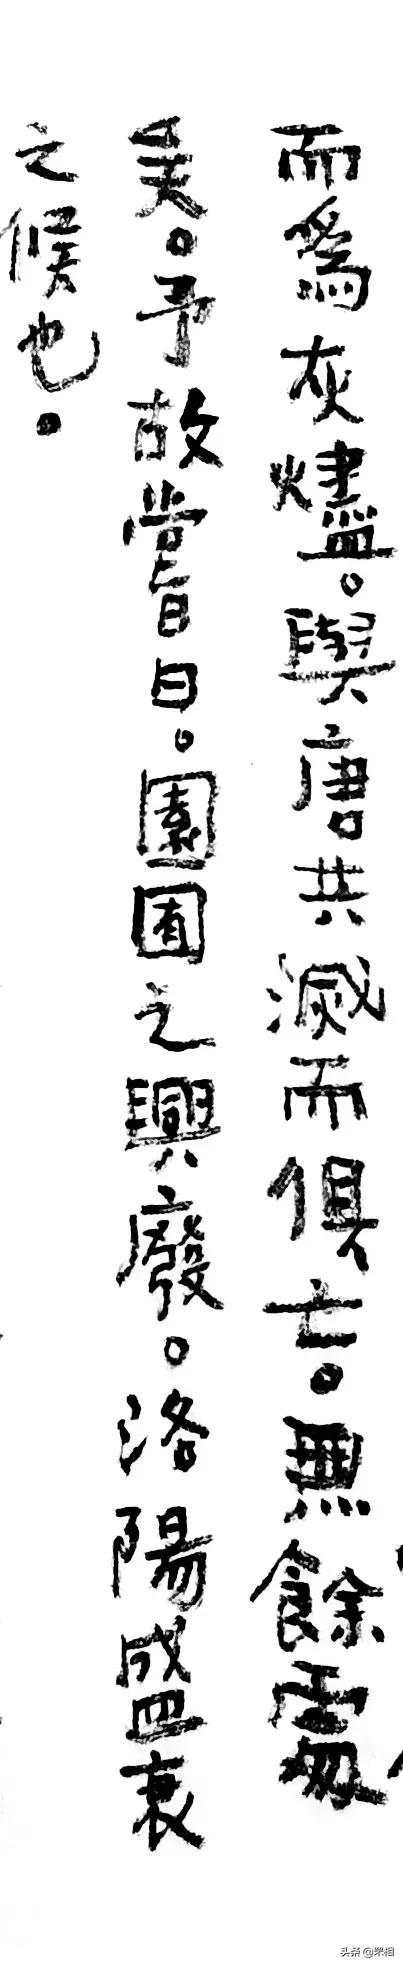 而爲灰燼。與唐共滅而俱亡。無餘處
矣。予故嘗曰。園囿之興廢。洛陽盛衰
之候也。
头条